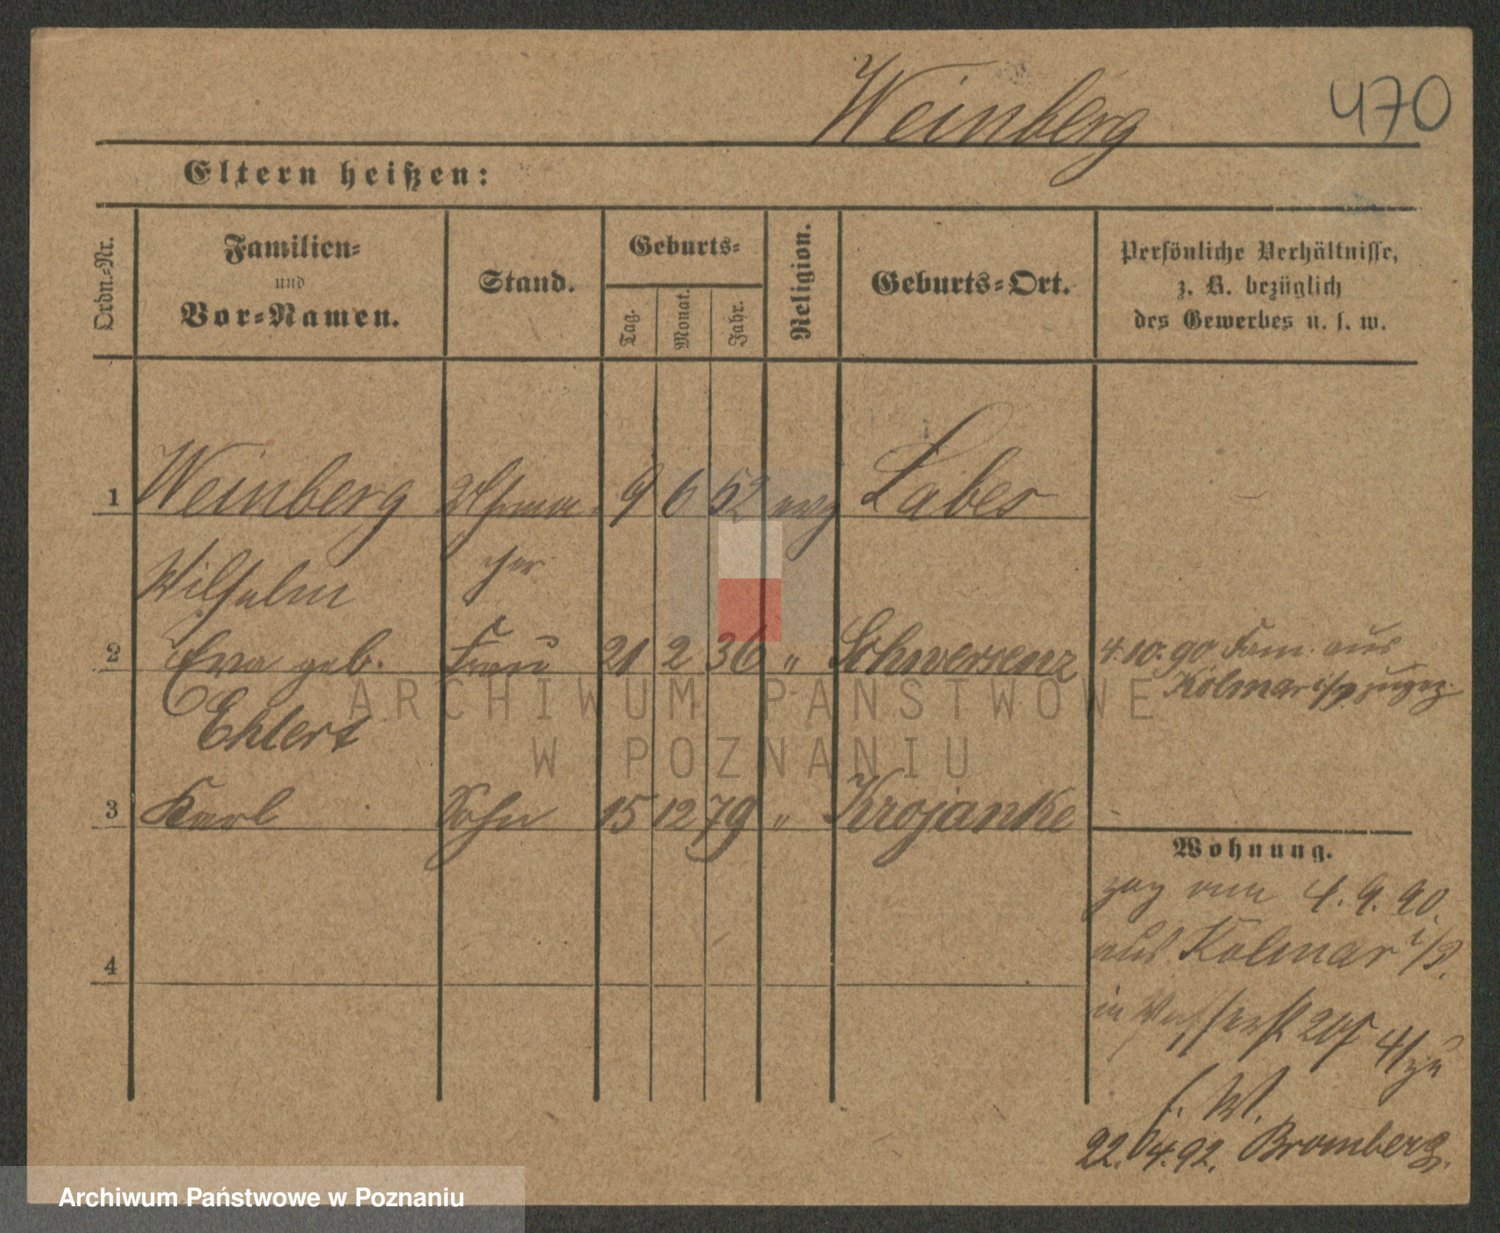 Weinberg 470
Eltern heißen:
Ordn.-Nr.
Familien-
und
Vor-Namen.
Stand.
Geburts-
Tag.
Monat.
Jahr.
Religion.
Geburts-Ort.
Persönliche Verhältnisse,
z. B. bezüglich
des Gewerbes u. s. w.
1 Weinberg Uhrma 9 6 52 evg Labes
Wilhelm cher
2 Eva geb. Frau 21 2 36 " Schwersenz
Ehlert
4.10.90 Fam. aus
Kolmar i/P zugez.
3 Karl Sohn 15 12 79 " Krojanke
4
Wohnung.
zog am 4.9.90.
aus Kolmar i/P.
in 41 zu
f. W.
22.4.92. Bromberg.
ARCHIWUM PAŃSTWOWE
W POZNANIU
Archiwum Państwowe w Poznaniu